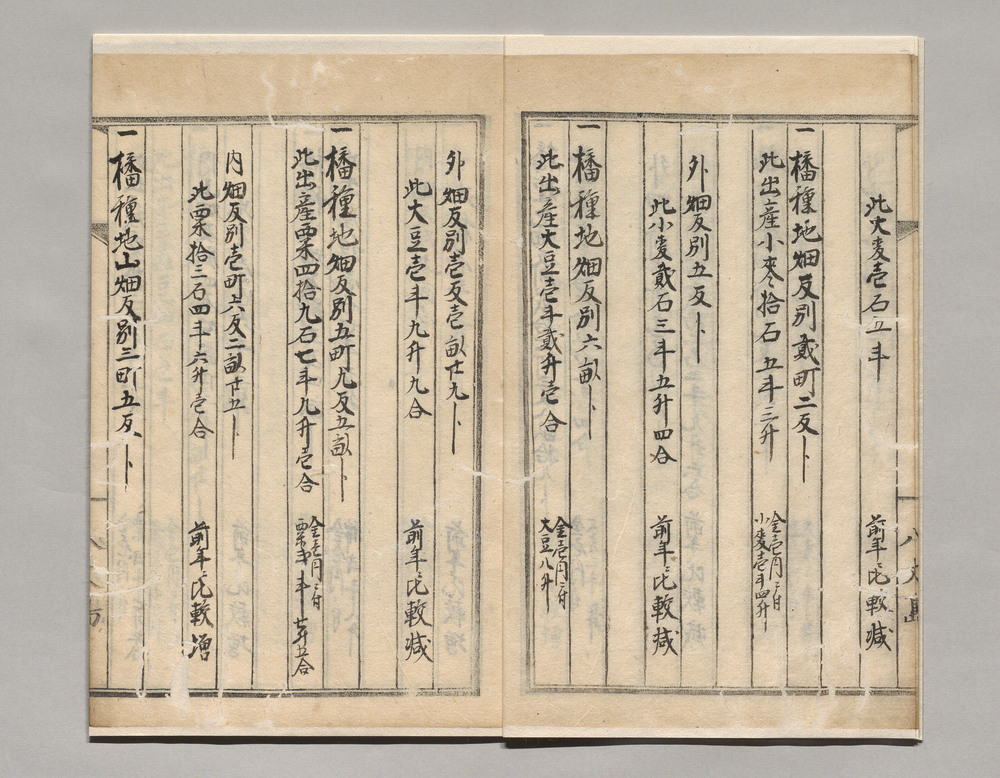 此大麦壱石五斗
前年ニ比較減
一播種地畑反別貳町二反ト
此出産小麦拾石五斗三升
金壱円ニ付
小麦壱斗四升
外畑反別五反ト
此小麦貳石三斗五升四合
前年ニ比較減
一播種地畑反別六畝ト
此出産大豆壱斗貳升壱合
金壱円ニ付
大豆八升
外畑反別壱反壱畝廿九ト
此大豆壱斗九升九合
前年ニ比較減
一播種地畑反別五町九反五畝ト
此出産粟四拾九石七斗九升壱合
金壱円ニ付
内畑反別壱町六反二畝廿五ト
此粟拾三石四斗六升壱合
前年ニ比較増
一播種地山畑反別三町五反ト